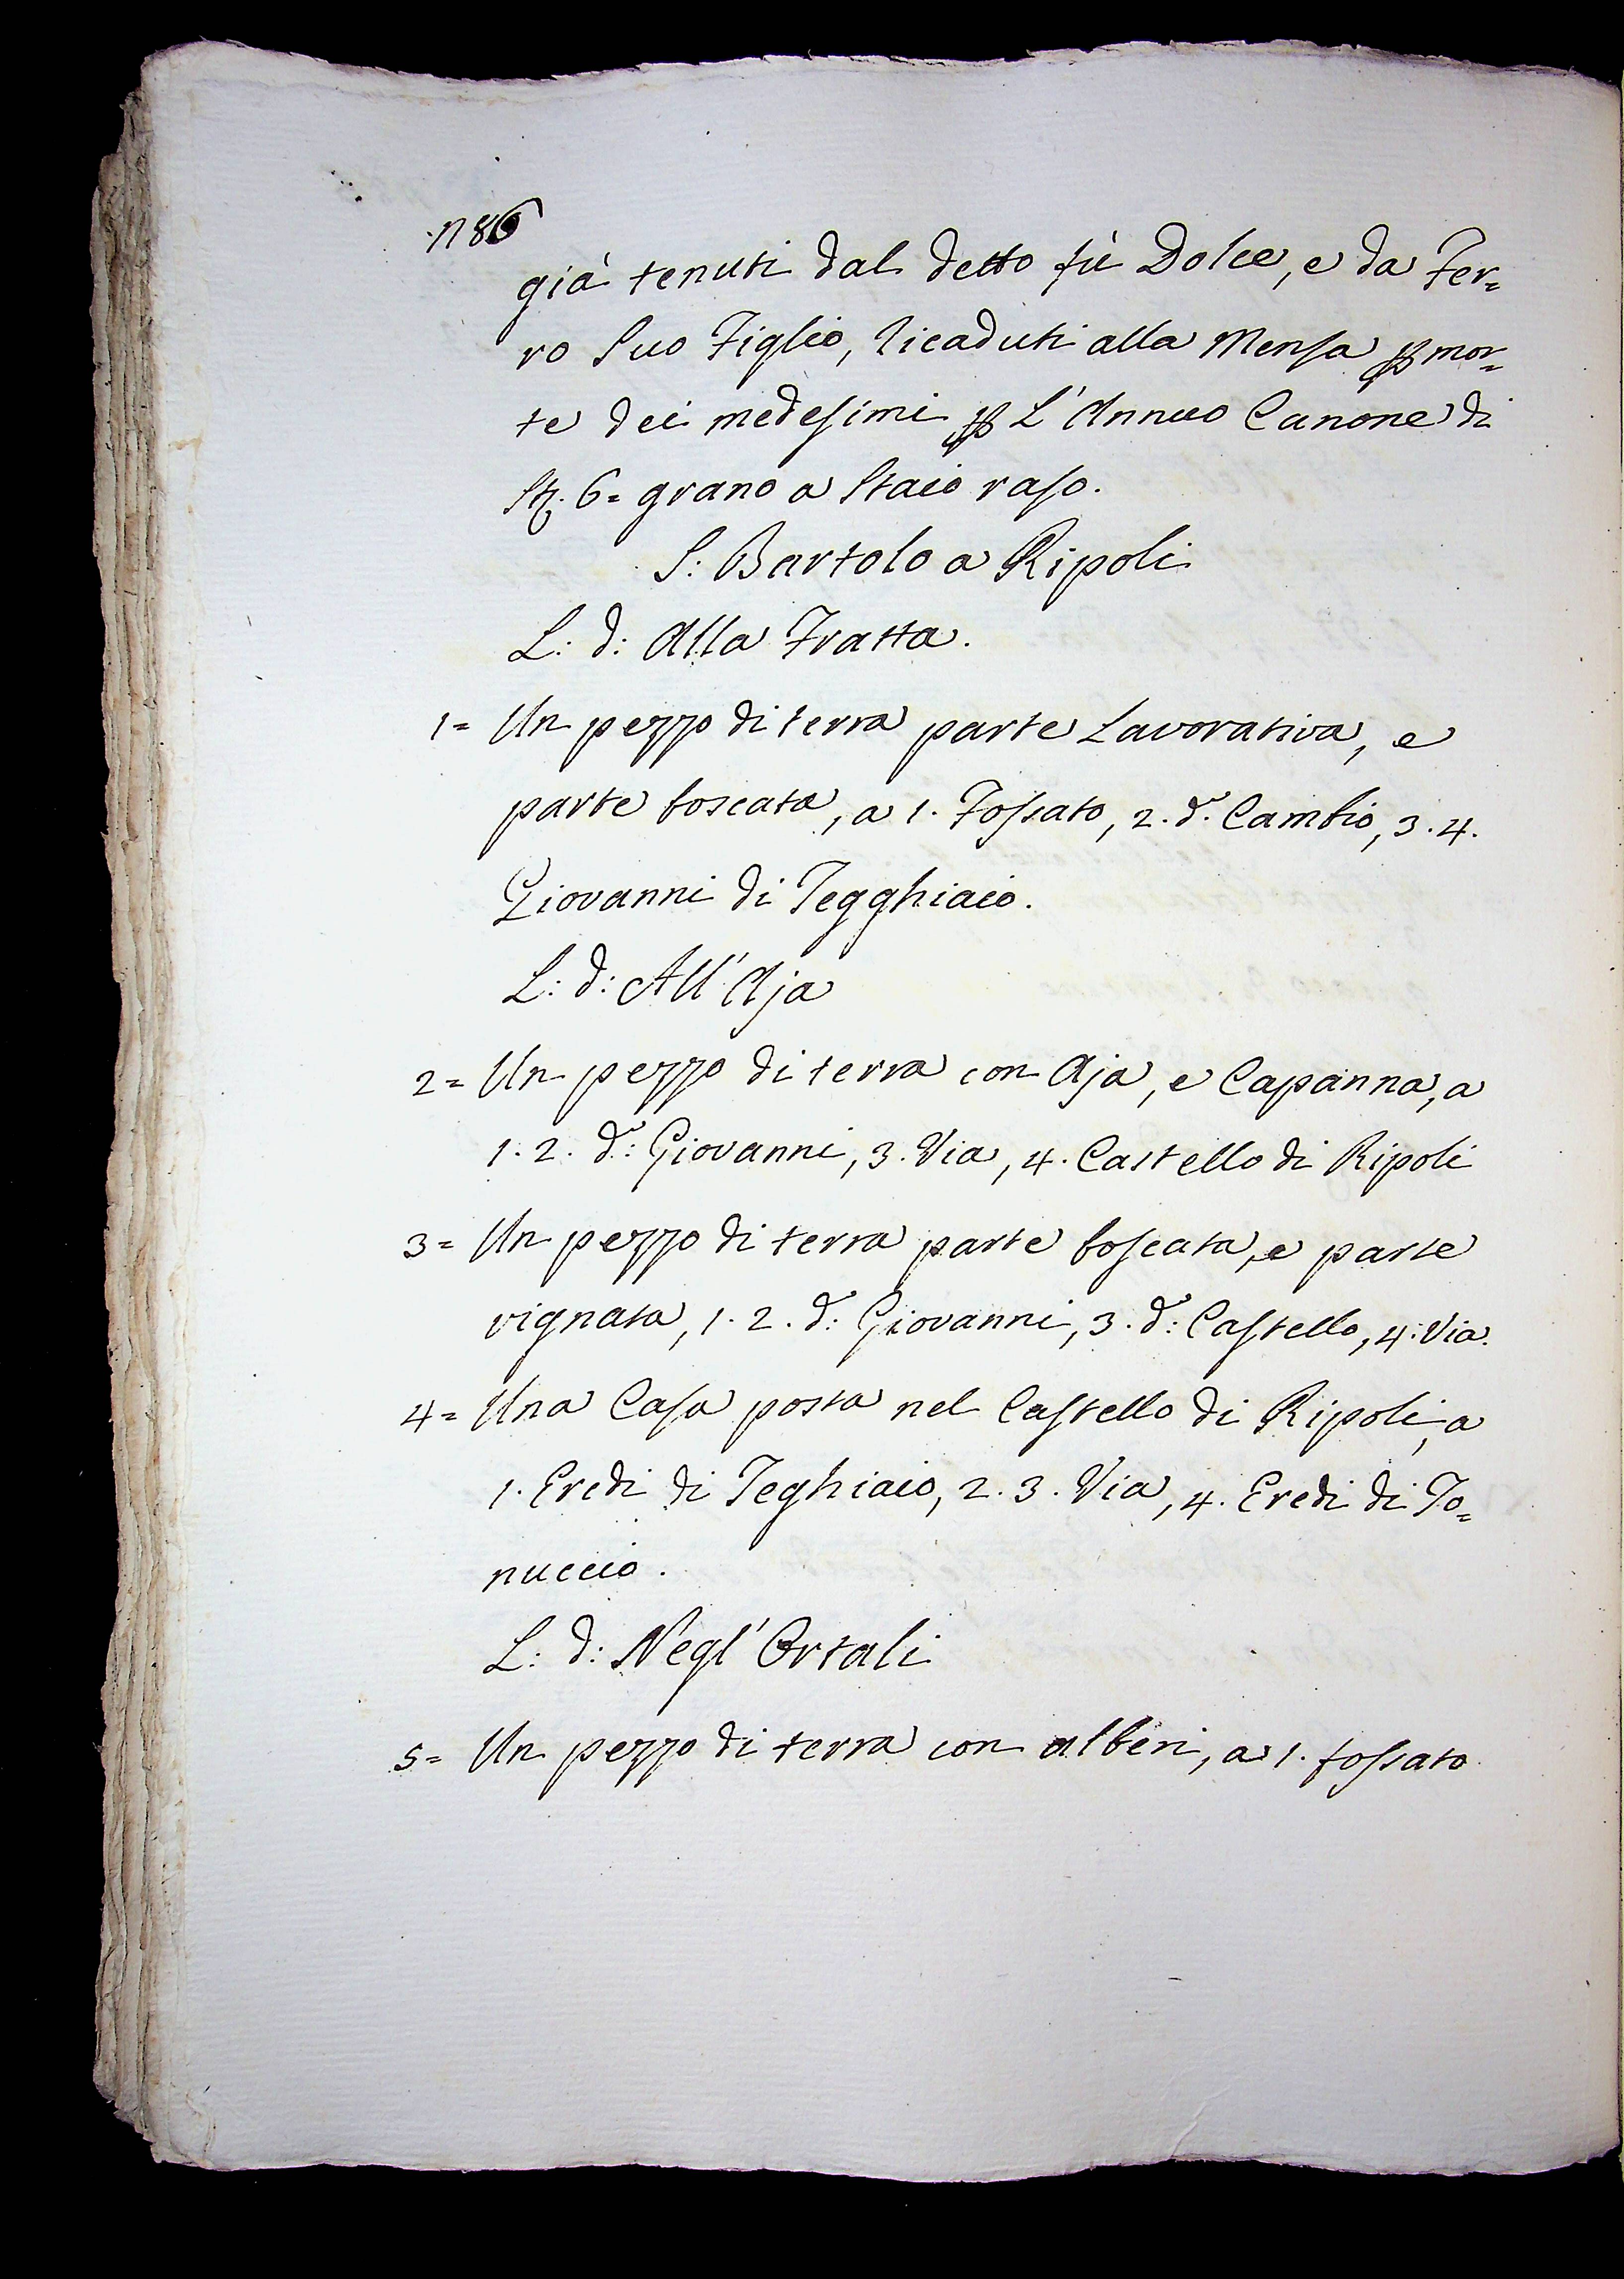 1786
già tenuti dal detto fù Dolce, e da Fer=
ro Suo Figlio, Ricaduti alla Mensa p mor=
te dei medesimi p L'Annuo Canone di
St. 6= grano a Staio raso.
S: Bartolo a Ripoli
L: d: Alla Fratta.
1= Un pezzo di terra parte Lavorativa, e
parte boscata, a 1. Fossato, 2. d.° Cambio, 3. 4.
Giovanni di Tegghiaio.
L: d: All'Aja
2= Un pezzo di terra con Aja, e Capanna, a
1. 2. d.°: Giovanni, 3. Via, 4. Castello di Ripoli
3= Un pezzo di terra parte boscata, e parte
vignata, 1. 2. d.°: Giovanni, 3. d.°: Castello, 4. Via.
4= Una Casa posta nel Castello di Ripoli, a
1. Eredi di Teghiaio, 2. 3. Via, 4. Eredi di To=
nuccio.
L: d: Negl'Ortali
5= Un pezzo di terra con alberi, a 1. fossato